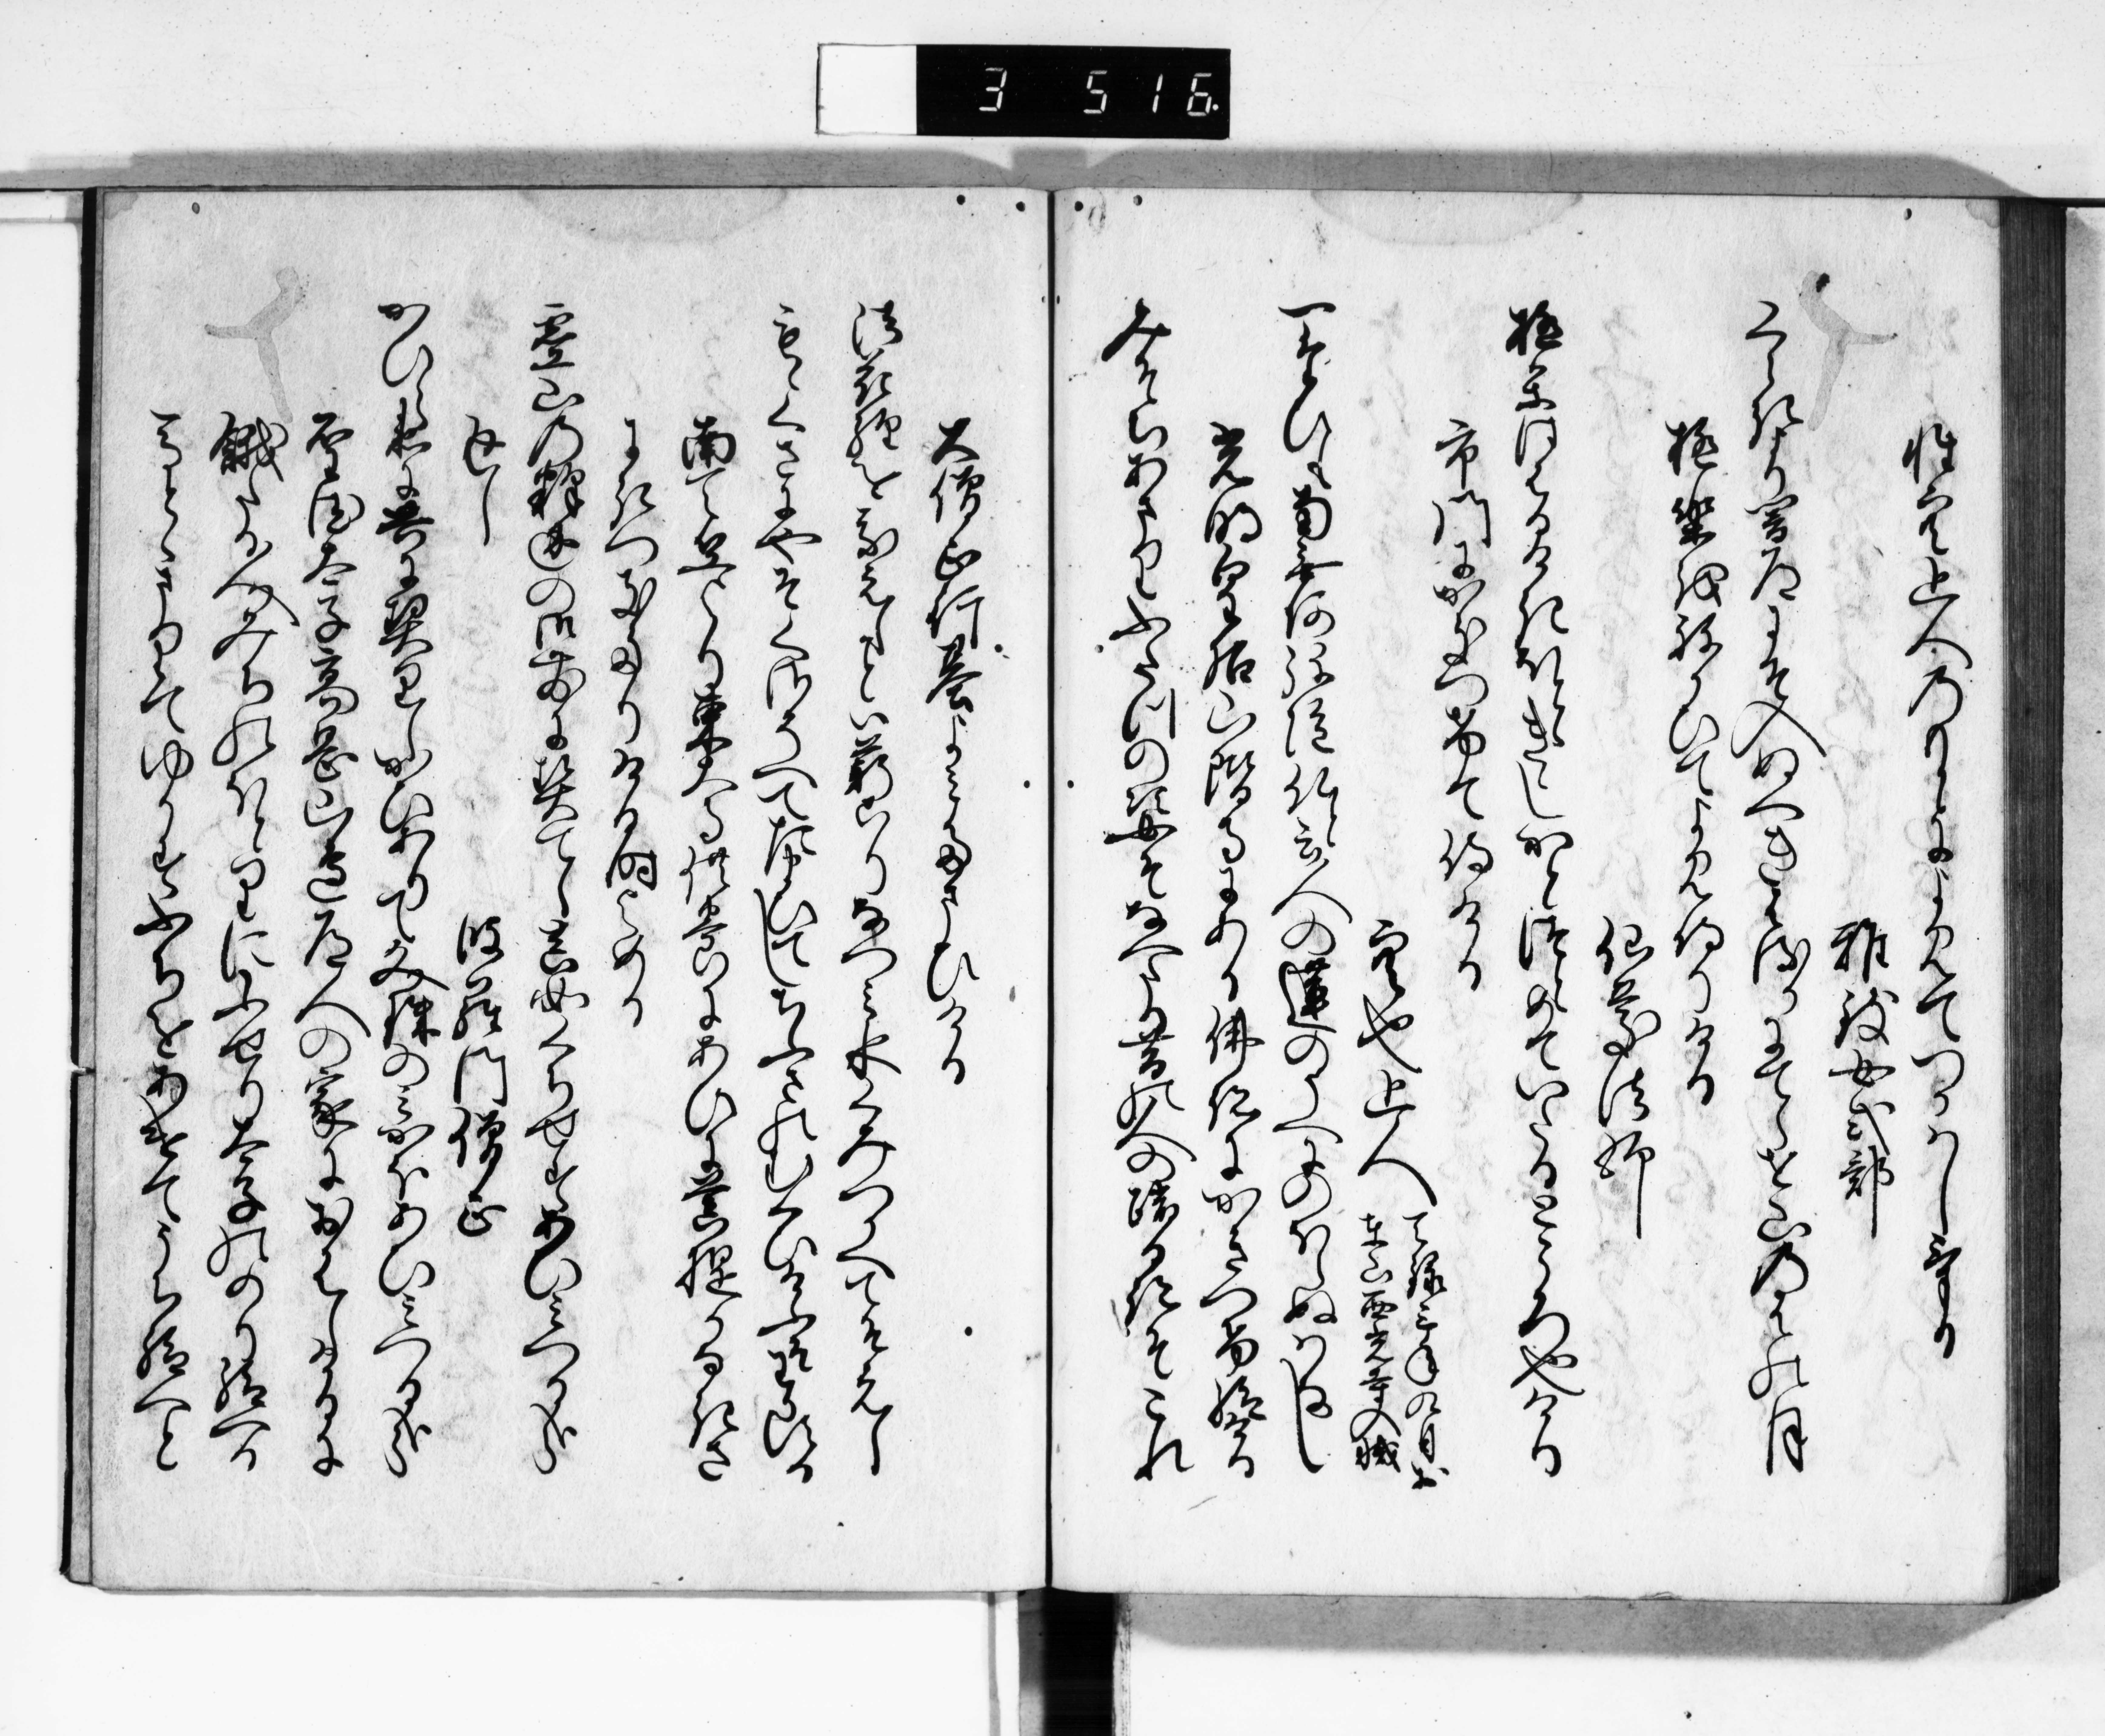 3 516
性空上人のもとによみてつかはしける
雅致女式部
くらきよりくらき道にそ入ぬへきはるかにてらせ山のはの月
極楽をねかひてよみ侍りける
仙慶法師
極楽ははるけきほととききしかとつとめていたるところなりけり
市門にかきつけて侍ける
空也上人
天禄三年九月於
東山西光寺入滅
一たひも南無阿弥陀仏といふ人の蓮のうへにのほらぬはなし
光明皇后山階寺にある仏跡にかきつけ給ける
みそちあまりふたつの姿そなへたる昔の人の踏る跡そこれ
大僧正行基よみたまひける
法花経を我えしことは薪こりなつみ水くみつかへてそえし
もゝくさにやそくさそへて給てしちふさのむくひけふそ我する
南天竺より東大寺供養にあひに菩提かなきさ
にきつきたりける時よめる
霊山の釈迦の御前に契てし真如くちせすあひみつるかな
返し
婆羅門僧正
かひらゑに共に契しかひありて文殊のみかほあひみつるかな
聖徳太子高岡山辺道人の家におはしけるに
餓たる人みちのほとりにふせり太子ののり給へる